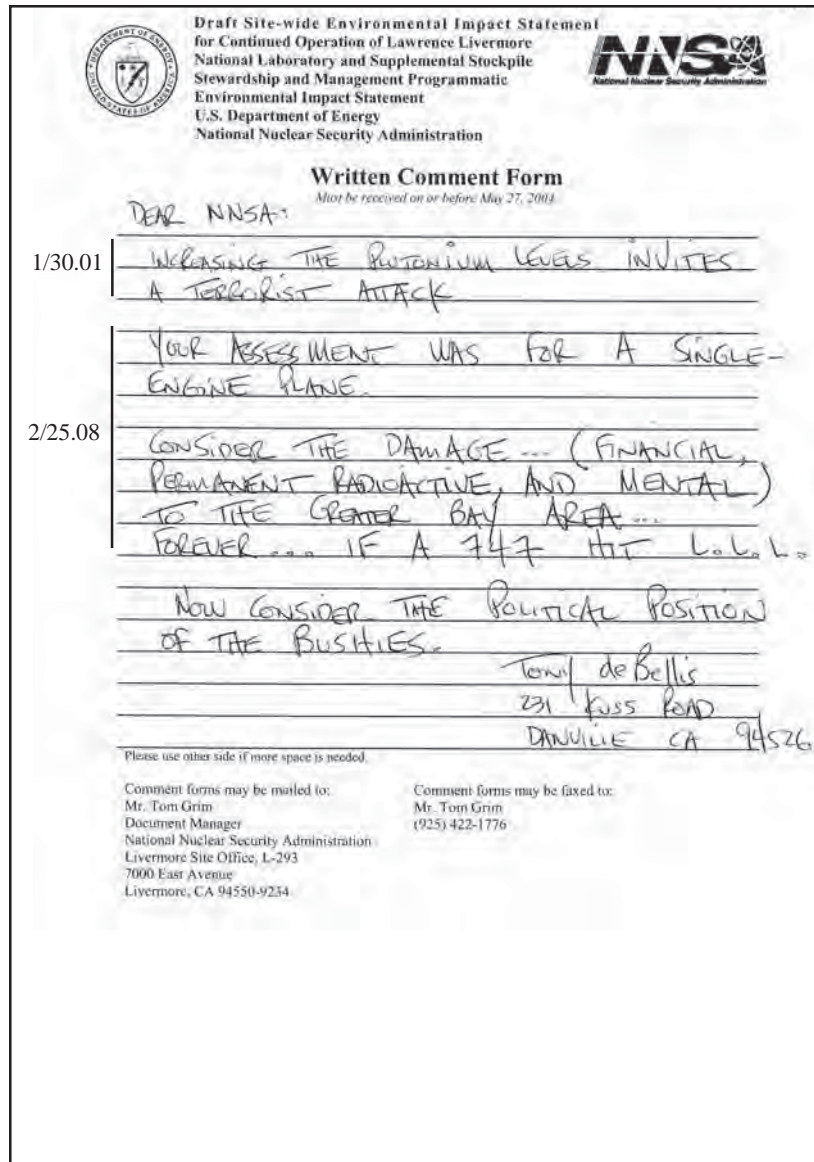 Draft Site-wide Environmental Impact Statement
for Continued Operation of Lawrence Livermore
National Laboratory and Supplemental Stockpile
Stewardship and Management Programmatic
Environmental Impact Statement
U.S. Department of Energy
National Nuclear Security Administration
DEPARTMENT OF ENERGY
UNITED STATES OF AMERICA
NNSA
National Nuclear Security Administration
Written Comment Form
Must be received on or before May 27, 2004.
DEAR NNSA:
1/30.01
INCREASING THE PLUTONIUM LEVELS INVITES
A TERRORIST ATTACK
YOUR ASSESSMENT WAS FOR A SINGLE-
ENGINE PLANE.
2/25.08
CONSIDER THE DAMAGE... (FINANCIAL,
PERMANENT RADIOACTIVE, AND MENTAL)
TO THE GREATER BAY AREA...
FOREVER... IF A 747 HIT L.L.L.
NOW CONSIDER THE POLITICAL POSITION
OF THE BUSHIES.
Tony de Bellis
231 KUSS ROAD
DANVILLE CA 94526
Please use other side if more space is needed.
Comment forms may be mailed to:
Mr. Tom Grim
Document Manager
National Nuclear Security Administration
Livermore Site Office, L-293
7000 East Avenue
Livermore, CA 94550-9234
Comment forms may be faxed to:
Mr. Tom Grim
(925) 422-1776